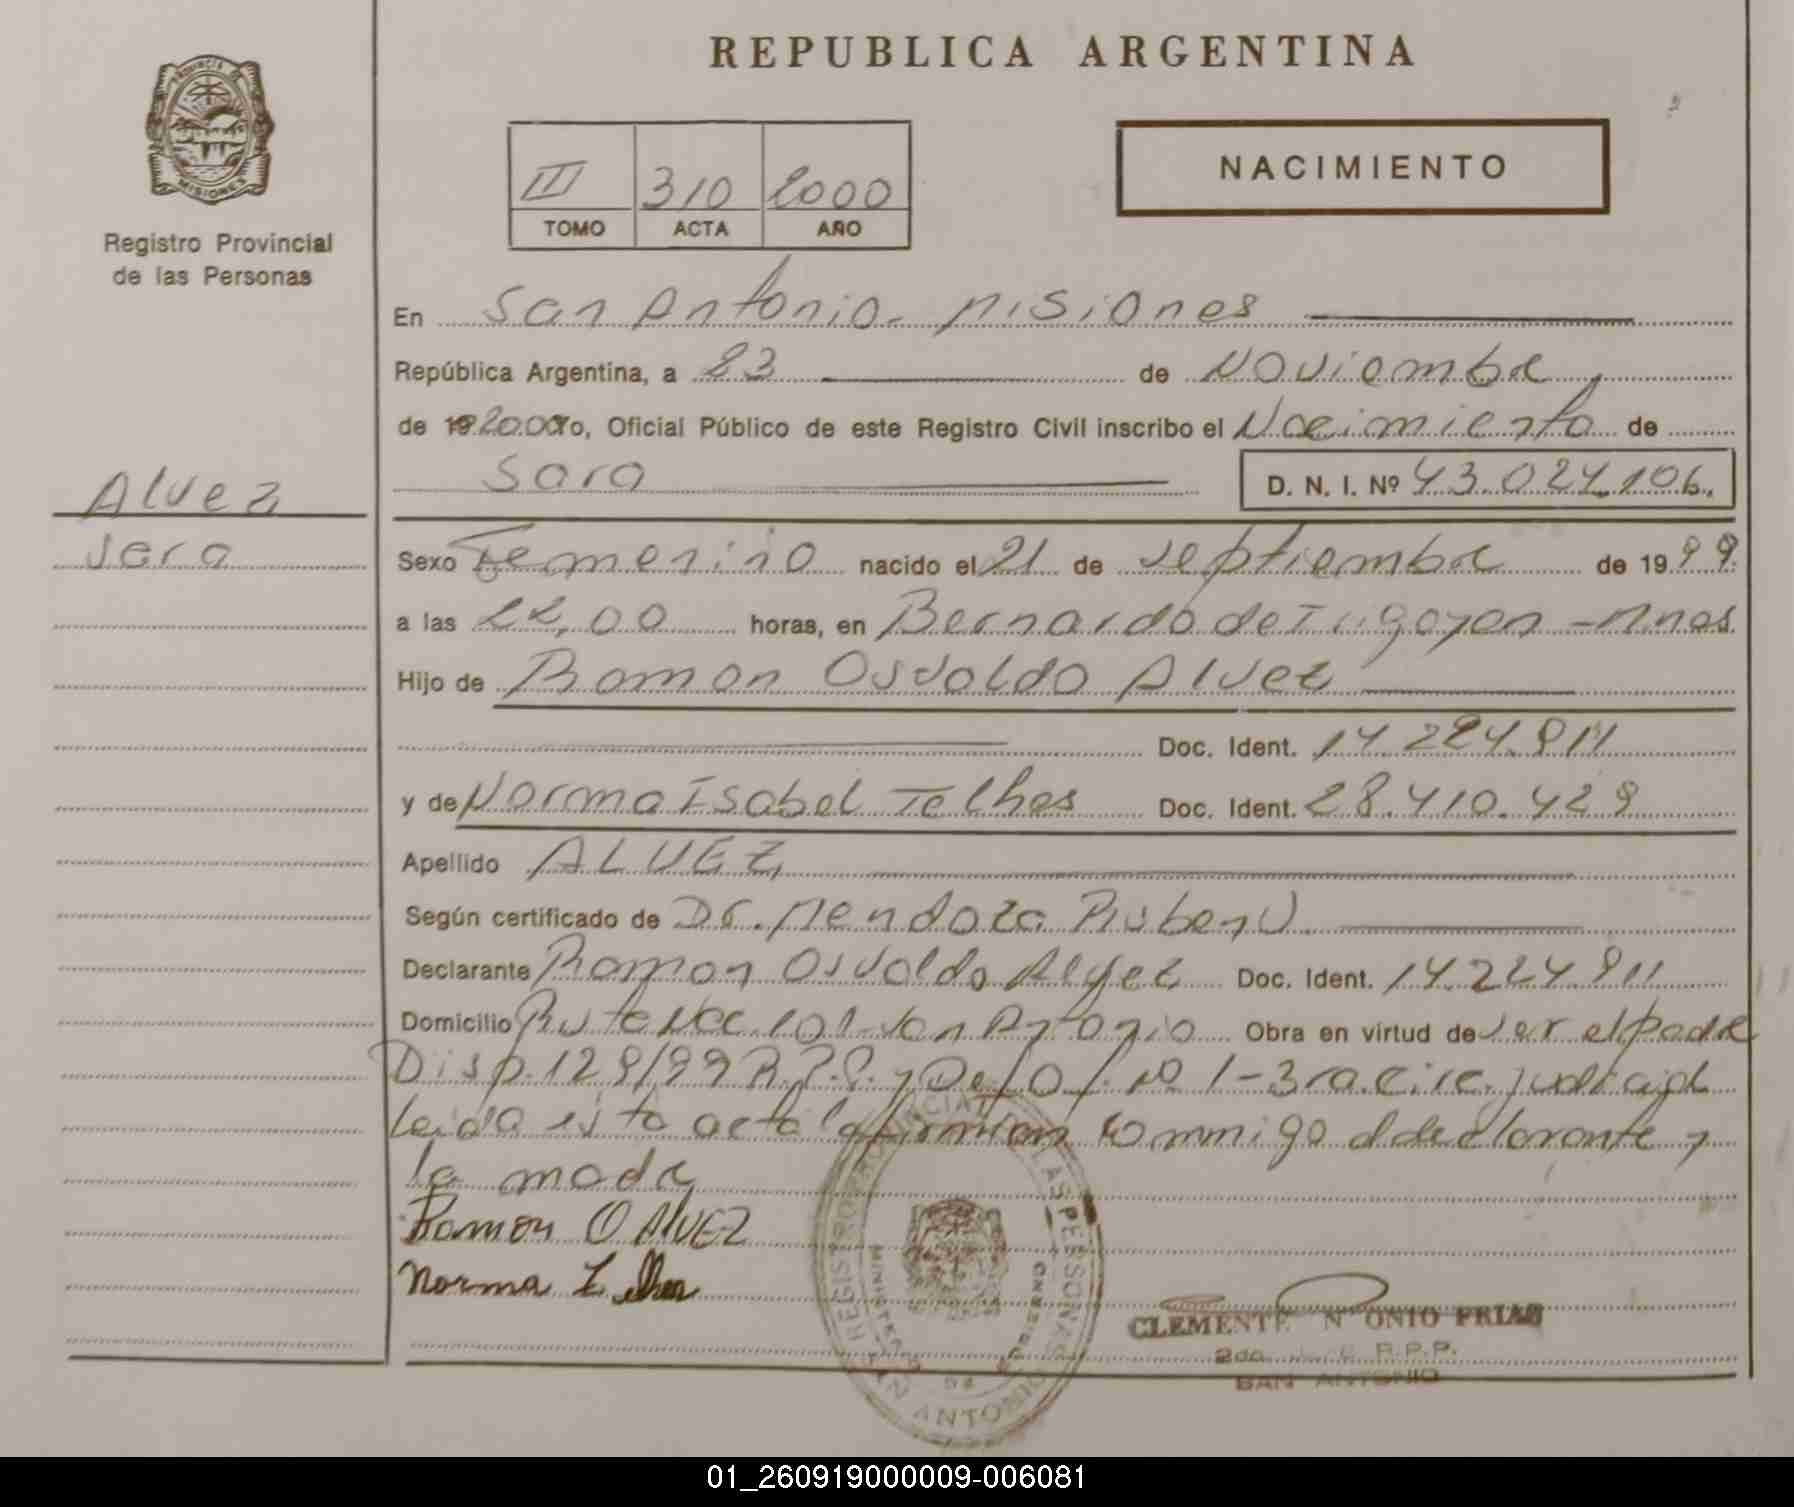 REPUBLICA ARGENTINA
PROVINCIA DE
MISIONES
Registro Provincial
de las Personas
III 310 2000
TOMO ACTA AÑO
NACIMIENTO
En San Antonio - Misiones
República Argentina, a 23 de Noviembre
de 19 2000 Yo, Oficial Público de este Registro Civil inscribo el Nacimiento de
Sara D. N. I. Nº 43.024.106.
Alvez
Sara
Sexo Femenino nacido el 21 de Septiembre de 1999
a las 22,00 horas, en Bernardo de Irigoyen - Mnes
Hijo de Ramon Osvaldo Alvez
Doc. Ident. 14.224.911
y de Norma Isabel Telhes Doc. Ident. 28.410.429
Apellido ALVEZ
Según certificado de Dr. Mendoza Ruben
Declarante Ramon Osvaldo Alvez Doc. Ident. 14.224.911
Domicilio Ruta Nac 101 San Antonio Obra en virtud de ser el padre
Disp. 129/99 R.P.P. y Nº 1-3 judicial
Leida esta acta la firman commigo el declarante y
la madre
Ramon O ALVEZ
Norma
REGISTRO PROVINCIAL DE LAS PERSONAS
SAN ANTONIO
CLEMENTE FRIAS
R.P.P.
SAN ANTONIO
01_260919000009-006081